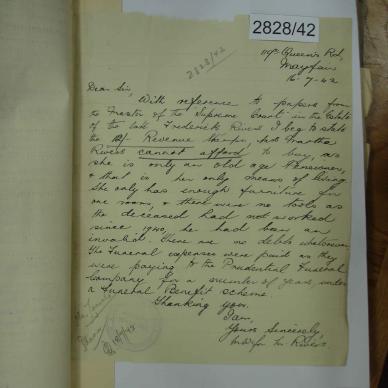 2828/42
2828/42
119 Queen's Rd,
Mayfair
16-7-42
Dear Sir,
With reference to papers from
the Master of the Supreme Court in the Estate
of the late Frederick Rivers I beg to state
the Revenue Martha
Rivers cannot afford to buy, as
she is only an old age Pensioner,
& that is her only means of living
She only has enough furniture for
one room, & there were no tools as
the deceased had not worked
since 1940, he had been an
invalid. There are no debts whatsoever
The Funeral expenses were paid as they
were paying to the Prudential Funeral
Company for a number of years, under
a Funeral Benefit scheme.
Thanking you.
I am,
Yours Sincerely